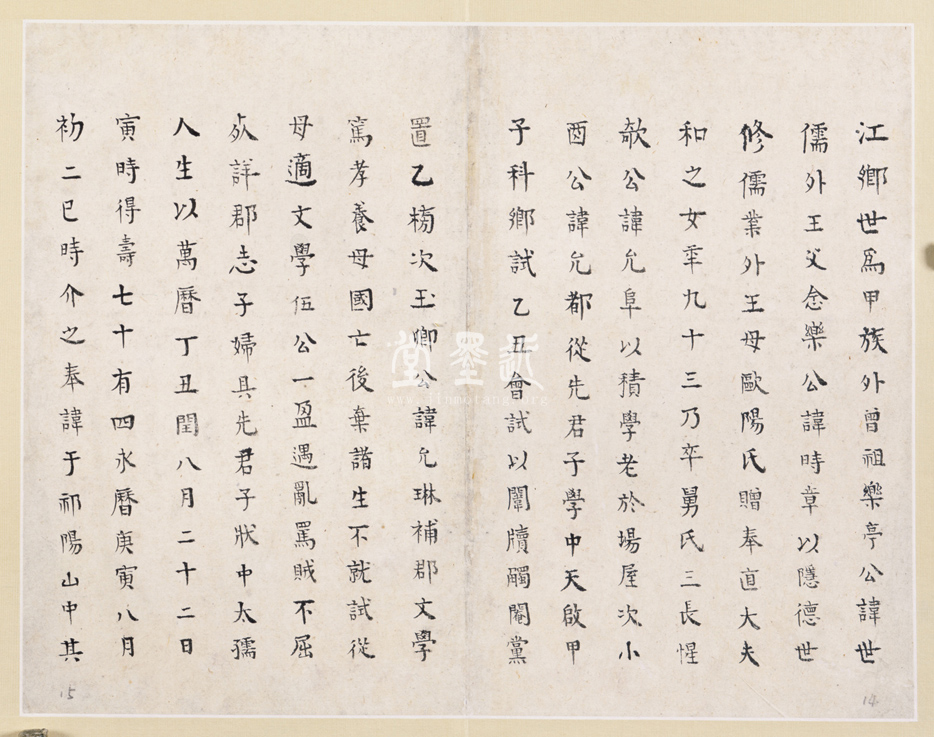 江鄉世爲甲族外曾祖樂亭公諱世
儒外王父念樂公諱時章以隱德世
修儒業外王母歐陽氏贈奉直大夫
和之女年九十三乃卒舅氏三長惺
欹公諱允阜以積學老於場屋次小
酉公諱允都從先君子學中天啟甲
子科鄉試乙丑會試以闈牘觸閹黨
置乙榜次玉卿公諱允琳補郡文學
篤孝養母國亡後棄諸生不就試從
母適文學伍公一盈遇亂罵賊不屈
死詳郡志子婦具先君子狀中太孺
人生以萬曆丁丑閏八月二十二日
寅時得壽七十有四永曆庚寅八月
初二巳時介之奉諱于祁陽山中其
14
15
近墨堂
www.jinmotang.org